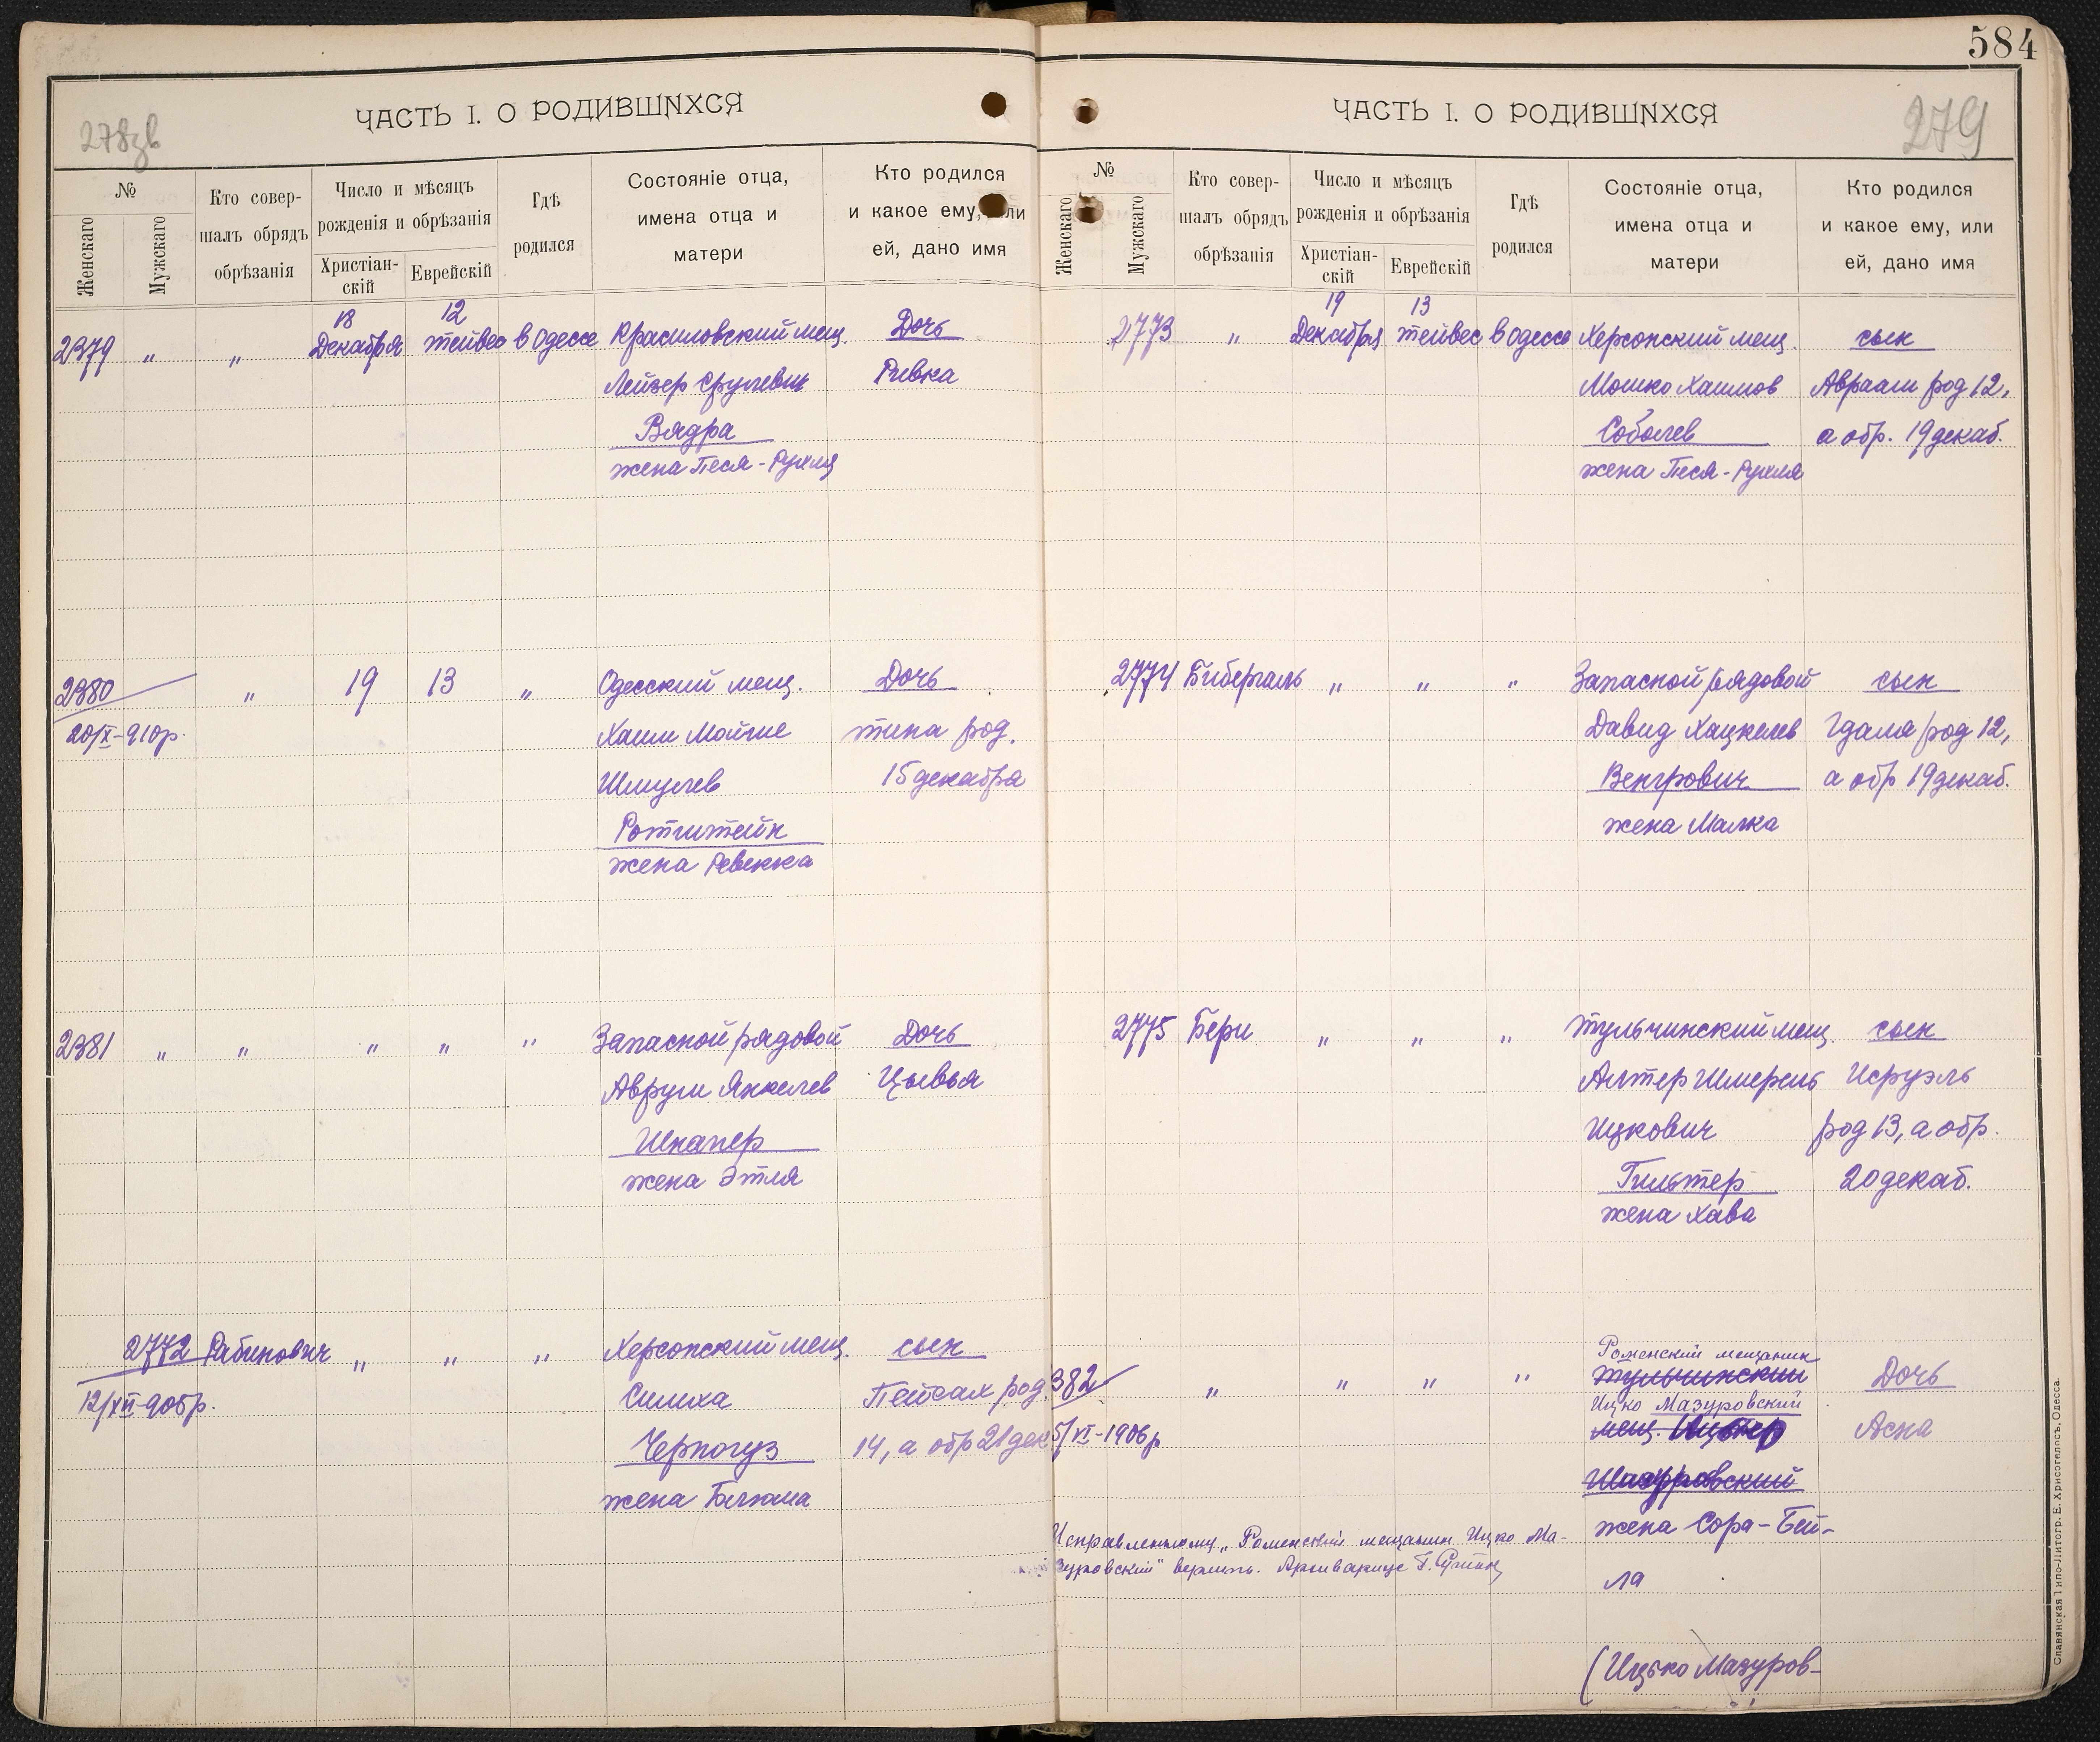 584
278зв
ЧАСТЬ I. О РОДИВШИХСЯ
№
Женскаго
Мужскаго
Кто совер-
шалъ обрядъ
обрѣзанія
Число и мѣсяцъ
рожденія и обрѣзанія
Христіан-
скій
Еврейскій
Гдѣ
родился
Состояніе отца,
имена отца и
матери
Кто родился
и какое ему, или
ей, дано имя
18 12
2379 " " Декабря тейвес в Одессе Красиловский мещ. Дочь
Лейзер Срулевич Ривка
Вядра
жена Песя-Рухля
2380 " 19 13 " Одесский мещ. Дочь
20/X-910р. Хаим Мойше типа род.
Шмулев 15 декабря
Ротштейн
жена Ревекка
2381 " " " " " Запасной рядовой Дочь
Аврум Янкелев Цывья
Шнапер
жена Этля
2772 Рабинович " " " Херсонский мещ. сын
12/XII-905р. Симха Пейсах род.
Черногуз 14, а обр 21 дек
жена
279
ЧАСТЬ I. О РОДИВШИХСЯ
№
Женскаго
Мужскаго
Кто совер-
шалъ обрядъ
обрѣзанія
Число и мѣсяцъ
рожденія и обрѣзанія
Христіан-
скій
Еврейскій
Гдѣ
родился
Состояніе отца,
имена отца и
матери
Кто родился
и какое ему, или
ей, дано имя
19 13
2773 " Декабря тейвес в Одессе Херсонский мещ. сын
Мошко Хаимов Авраам род 12,
Соболев а обр. 19 декаб.
жена Песя-Рухля
2774 Бибергаль " " " Запасной рядовой сын
Давид Хацкелев Гдаля род 12,
Венгрович а обр 19 декаб.
жена Малка
2775 Бери " " " Тульчинский мещ. сын
Алтер Шмерель Исруэль
Ицкович род 13, а обр.
Гильтер 20 декаб.
жена Хава
Роменский мещанин
382 " " " " Тульчинский Дочь
Ицко Мазуровский
5/VI-1906р мещ. Асна
жена Сора-Бей-
ла
Исправленному „Роменский мещанин Ицко Ма-
зуровский" верить. Архивариус
(Ицько Мазуров-
Славянская Типо-Литогр. Е. Хрисогелосъ, Одесса.